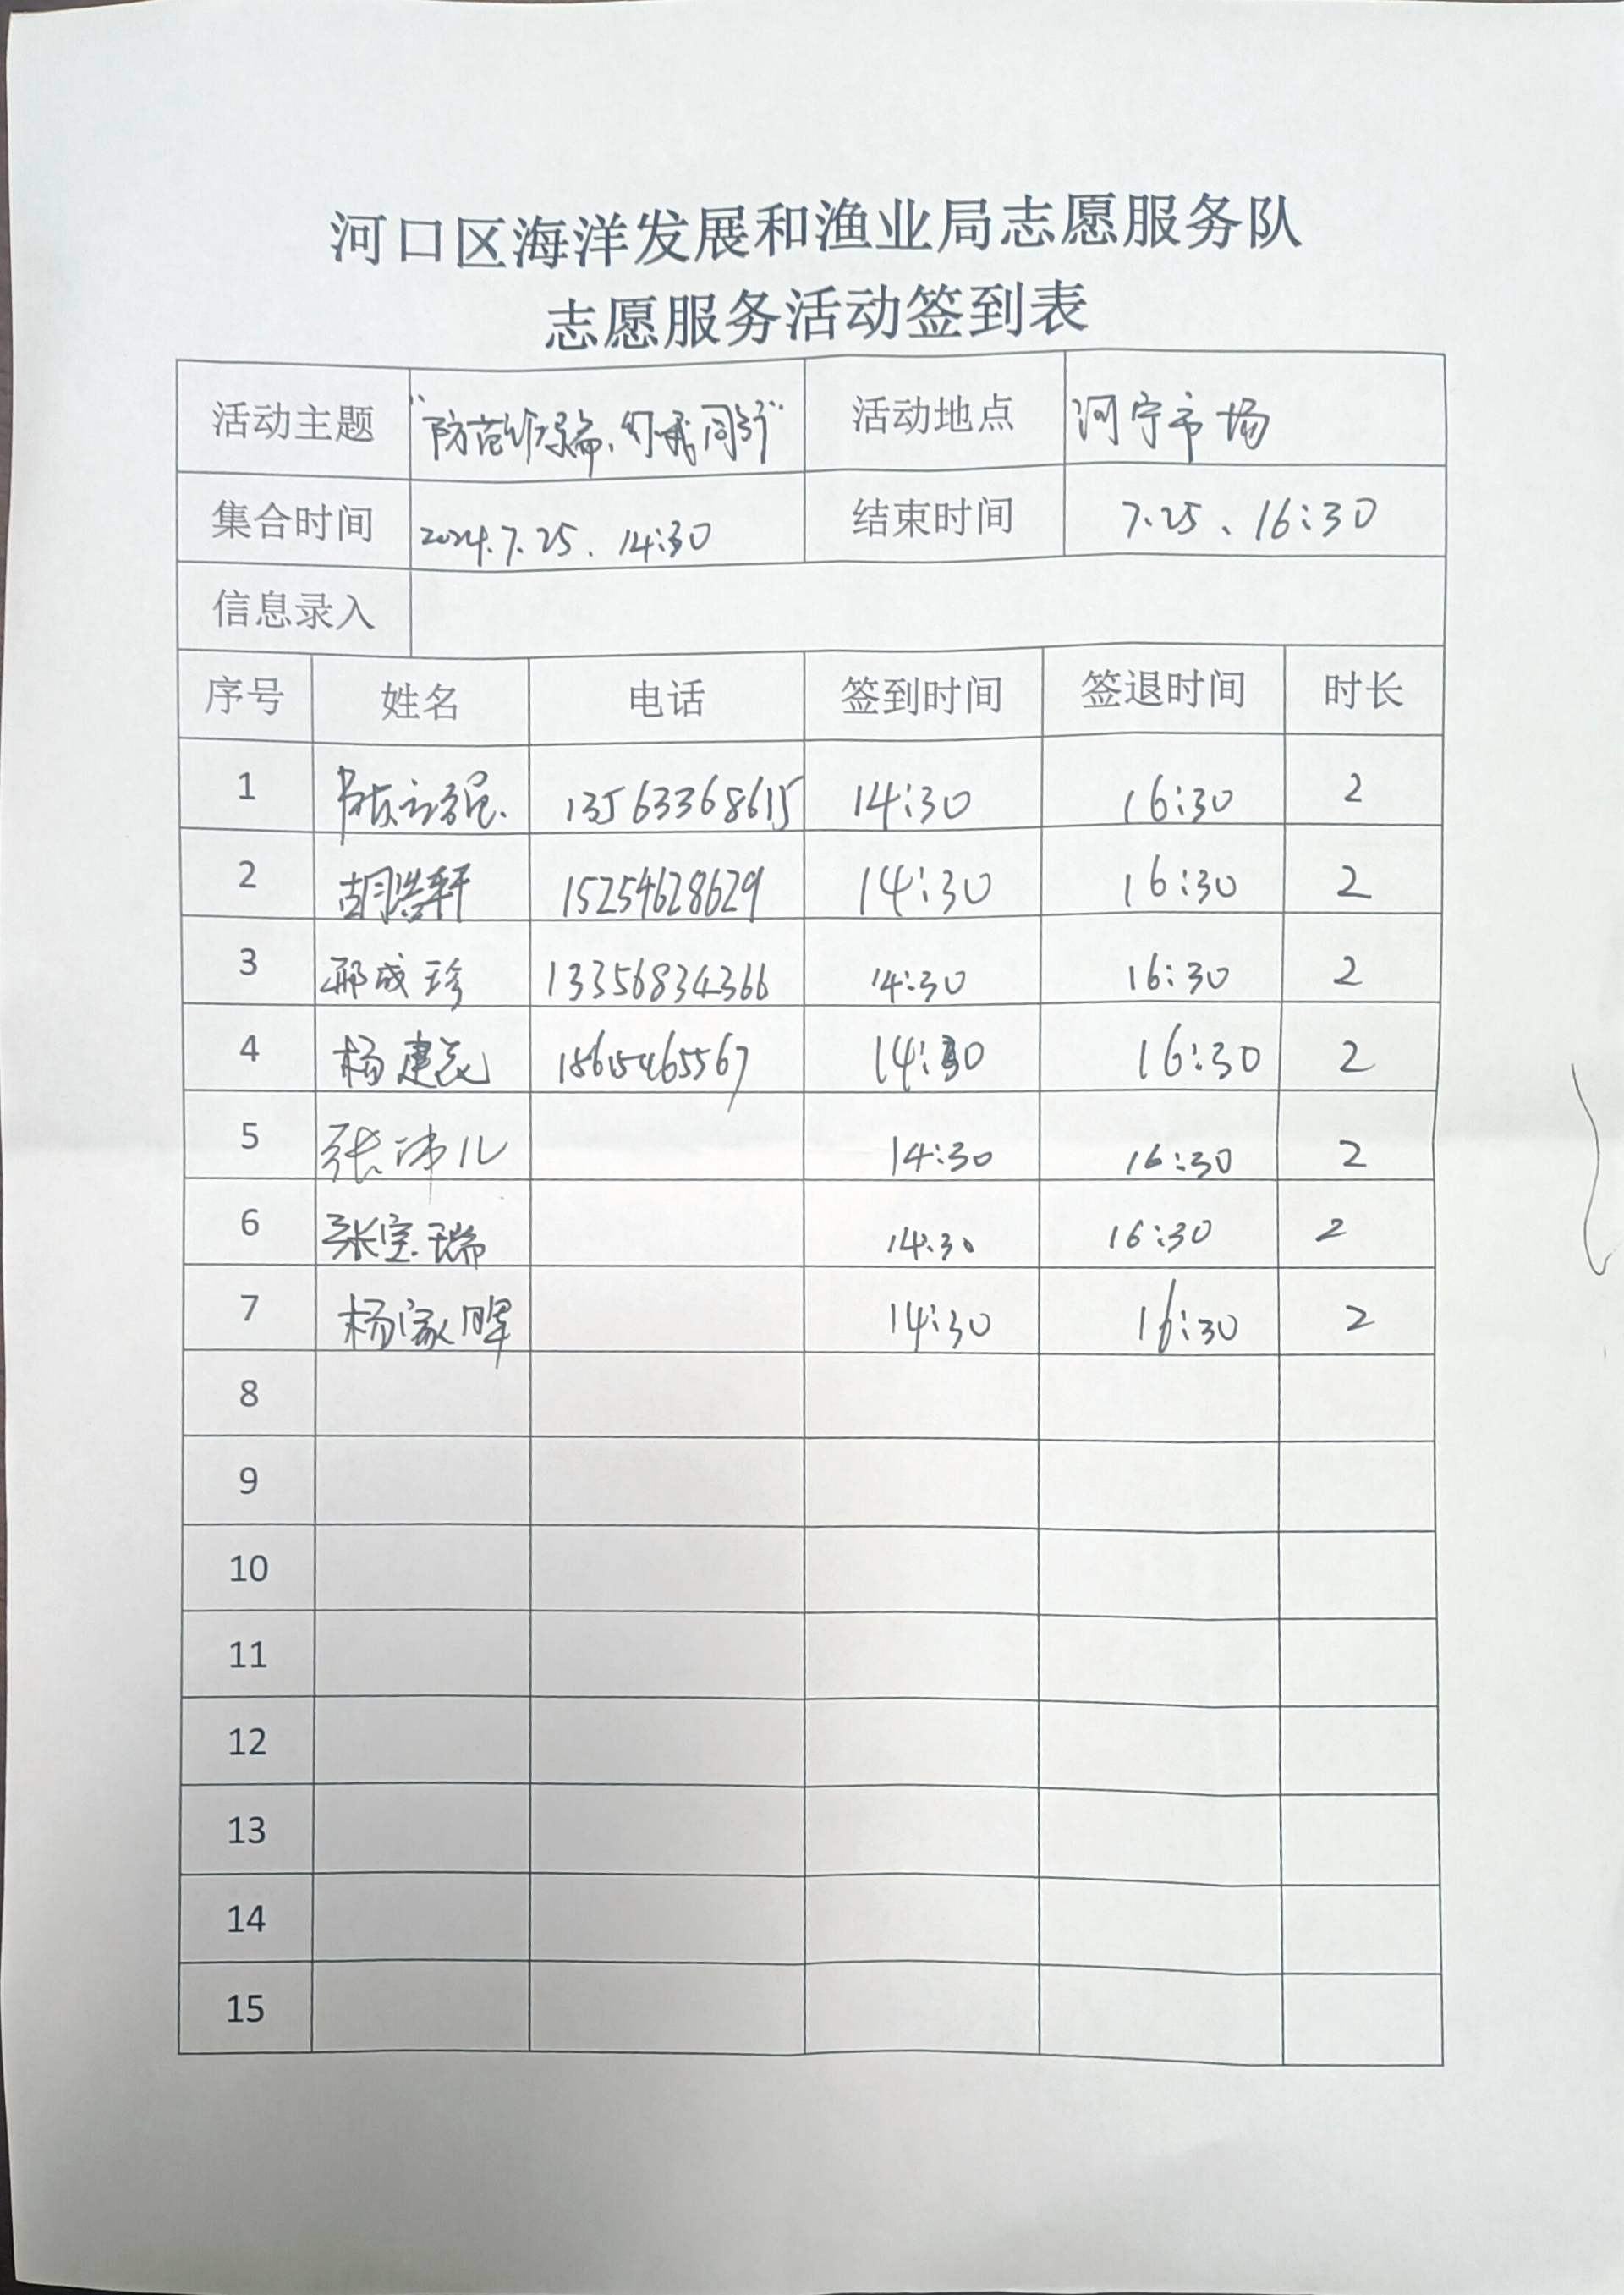 河口区海洋发展和渔业局志愿服务队
志愿服务活动签到表
活动主题 "防范 你我同行" 活动地点 河宁市场
集合时间 2024.7.25、14:30 结束时间 7.25、16:30
信息录入
序号 姓名 电话 签到时间 签退时间 时长
1 13563368615 14:30 16:30 2
2 胡浩轩 15254628629 14:30 16:30 2
3 邢成珍 13356834366 14:30 16:30 2
4 杨建 15615465567 14:30 16:30 2
5 张沛儿 14:30 16:30 2
6 张宝瑞 14:30 16:30 2
7 杨家晖 14:30 16:30 2
8
9
10
11
12
13
14
15